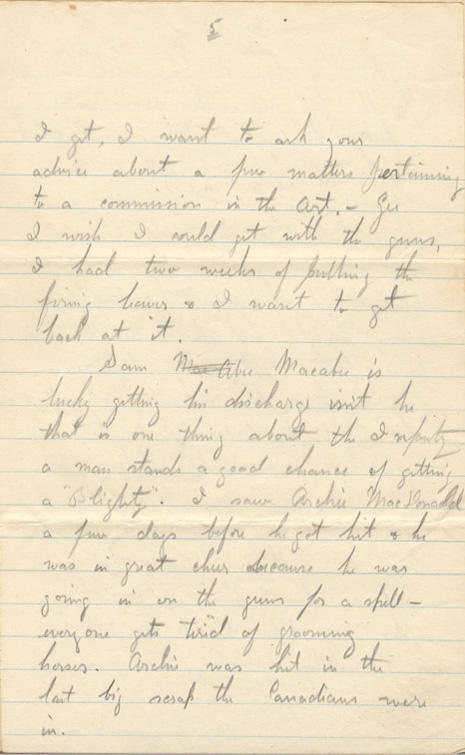 5
I get, I want to ask your
advice about a few matters pertaining
to a commission in the Art. – Gee
I wish I could get with the guns,
I had two weeks of pulling the
firing lever & I want to get
back at it.
Sam Mac Abee Macabee is
lucky getting his discharge isn't he
that is one thing about the Infantry
a man stands a good chance of getting
a "Blighty". I saw Archie MacDonald
a few days before he got hit & he
was in great cheer because he was
going in on the guns for a spell –
everyone gets tired of grooming
horses. Archie was hit in the
last big scrap the Canadians were
in.